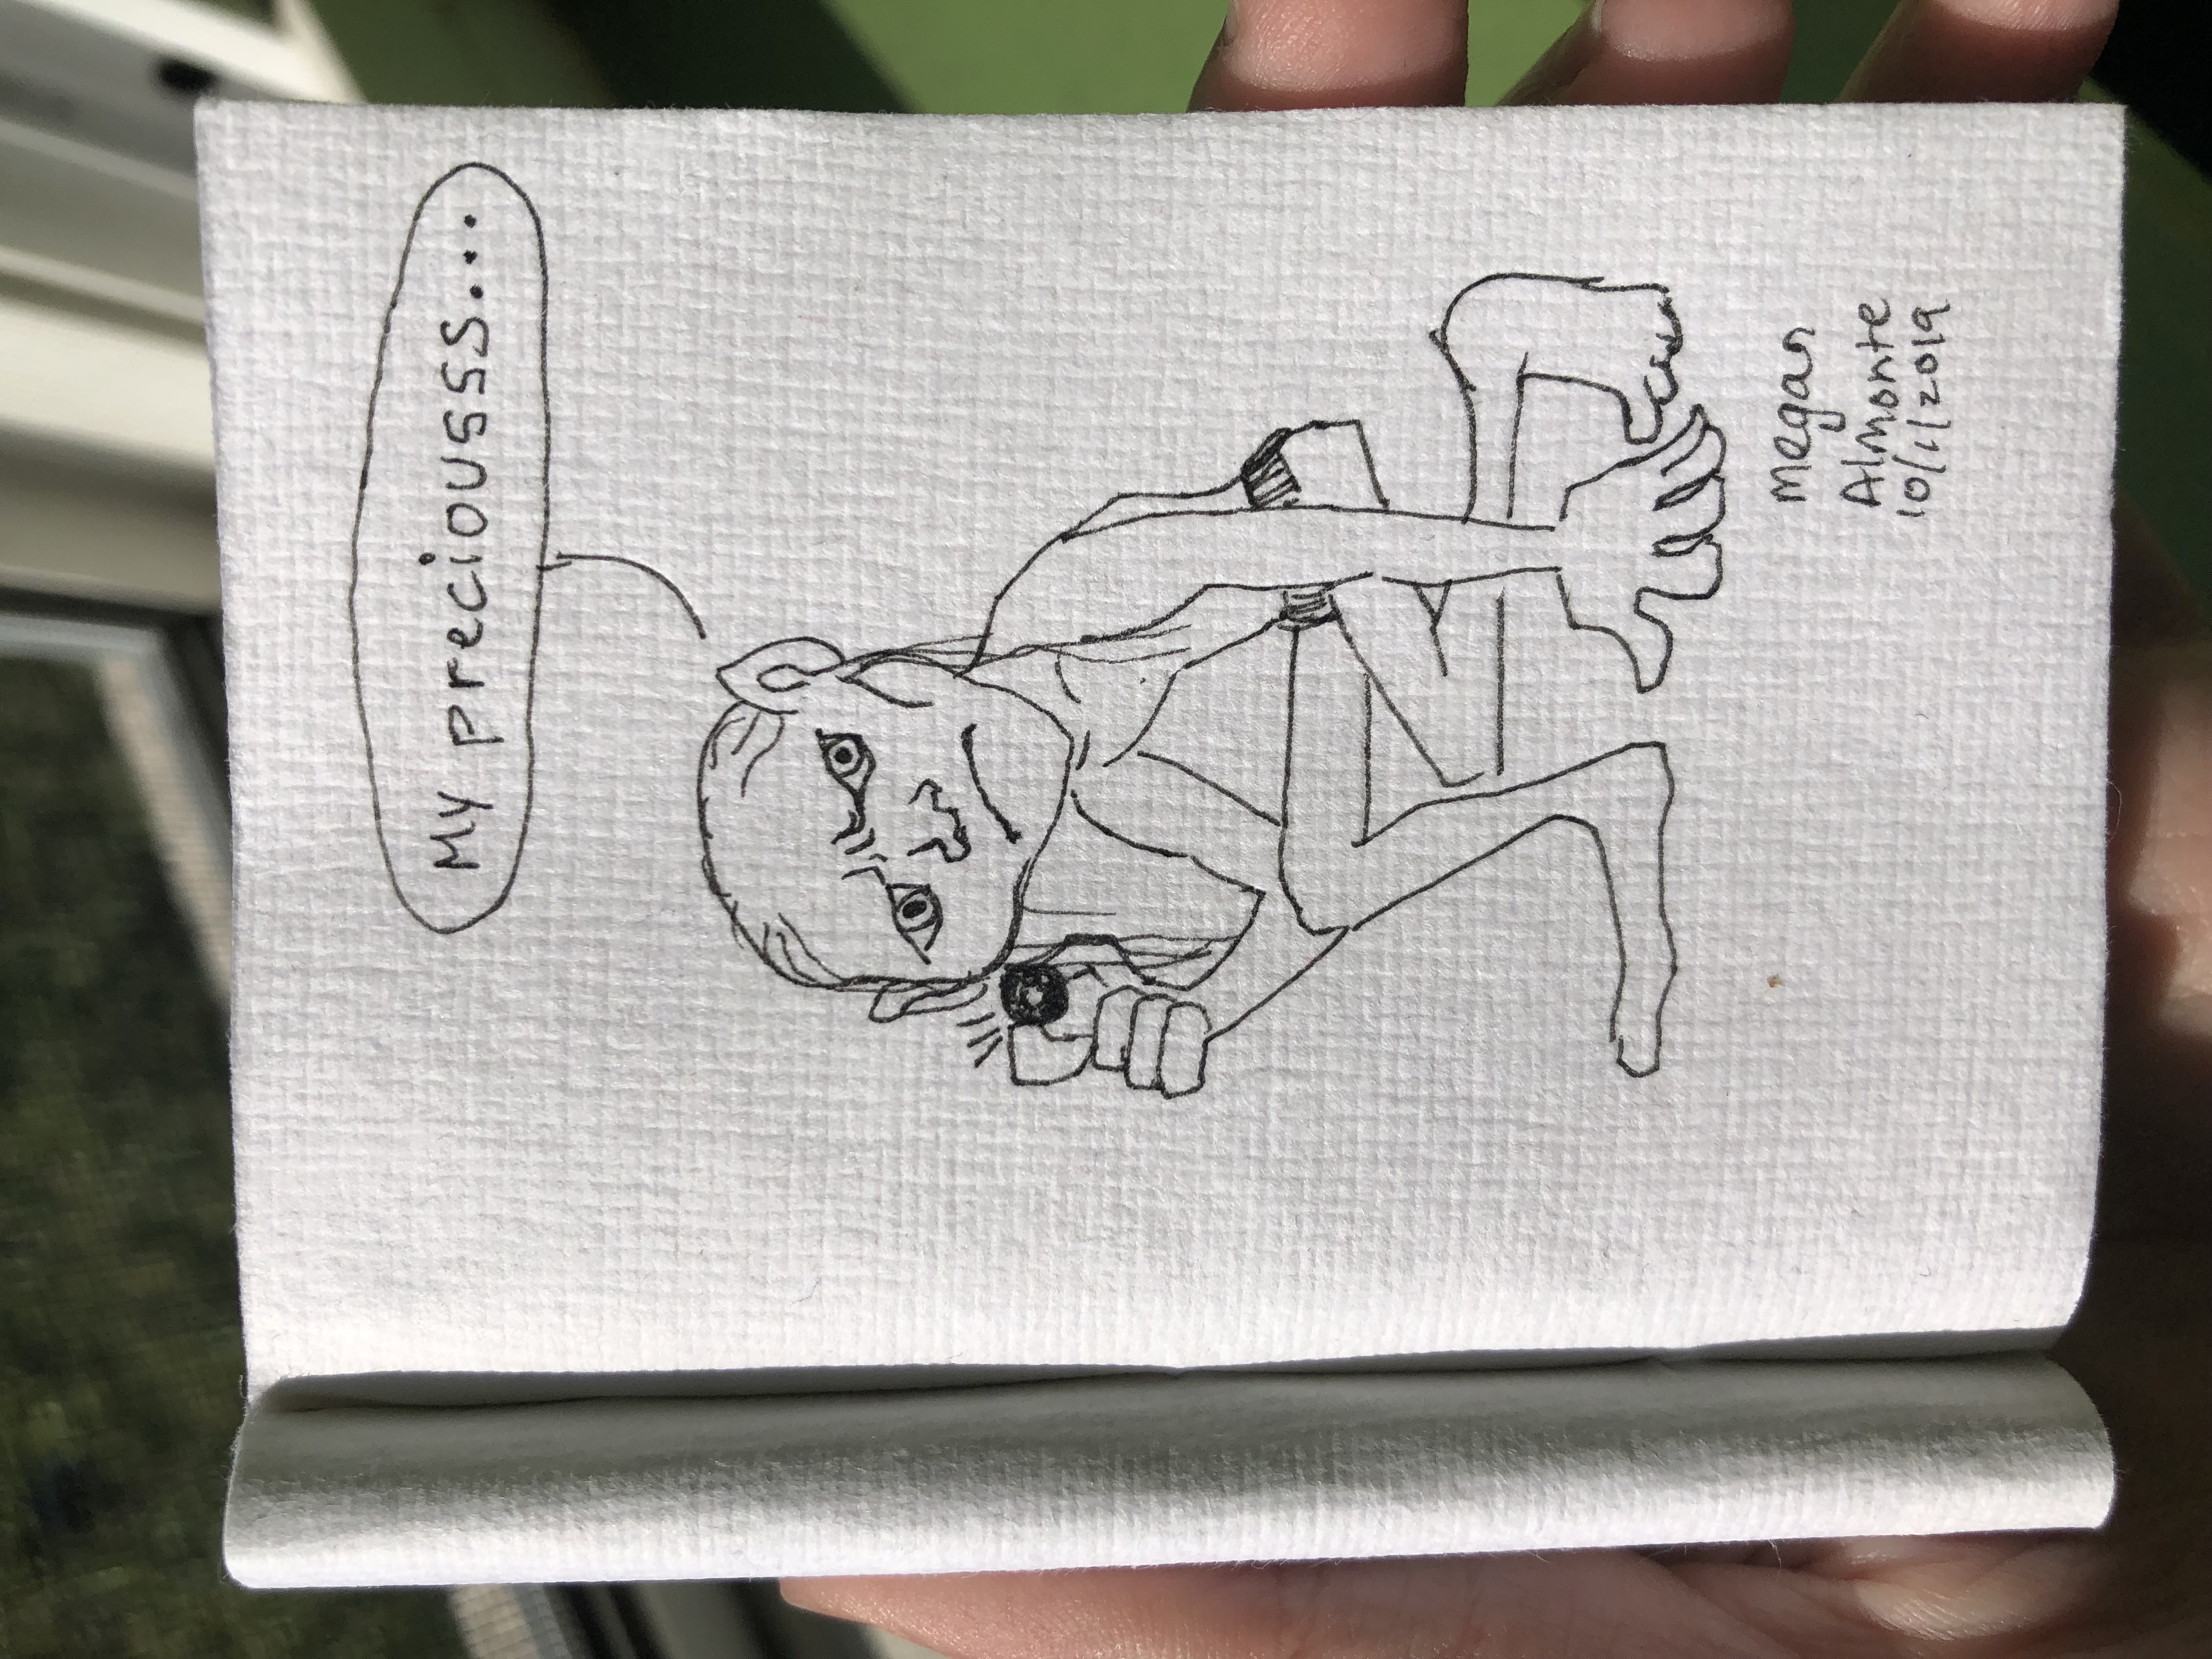 My preciousss...
Megan
Almonte
10/1/2019